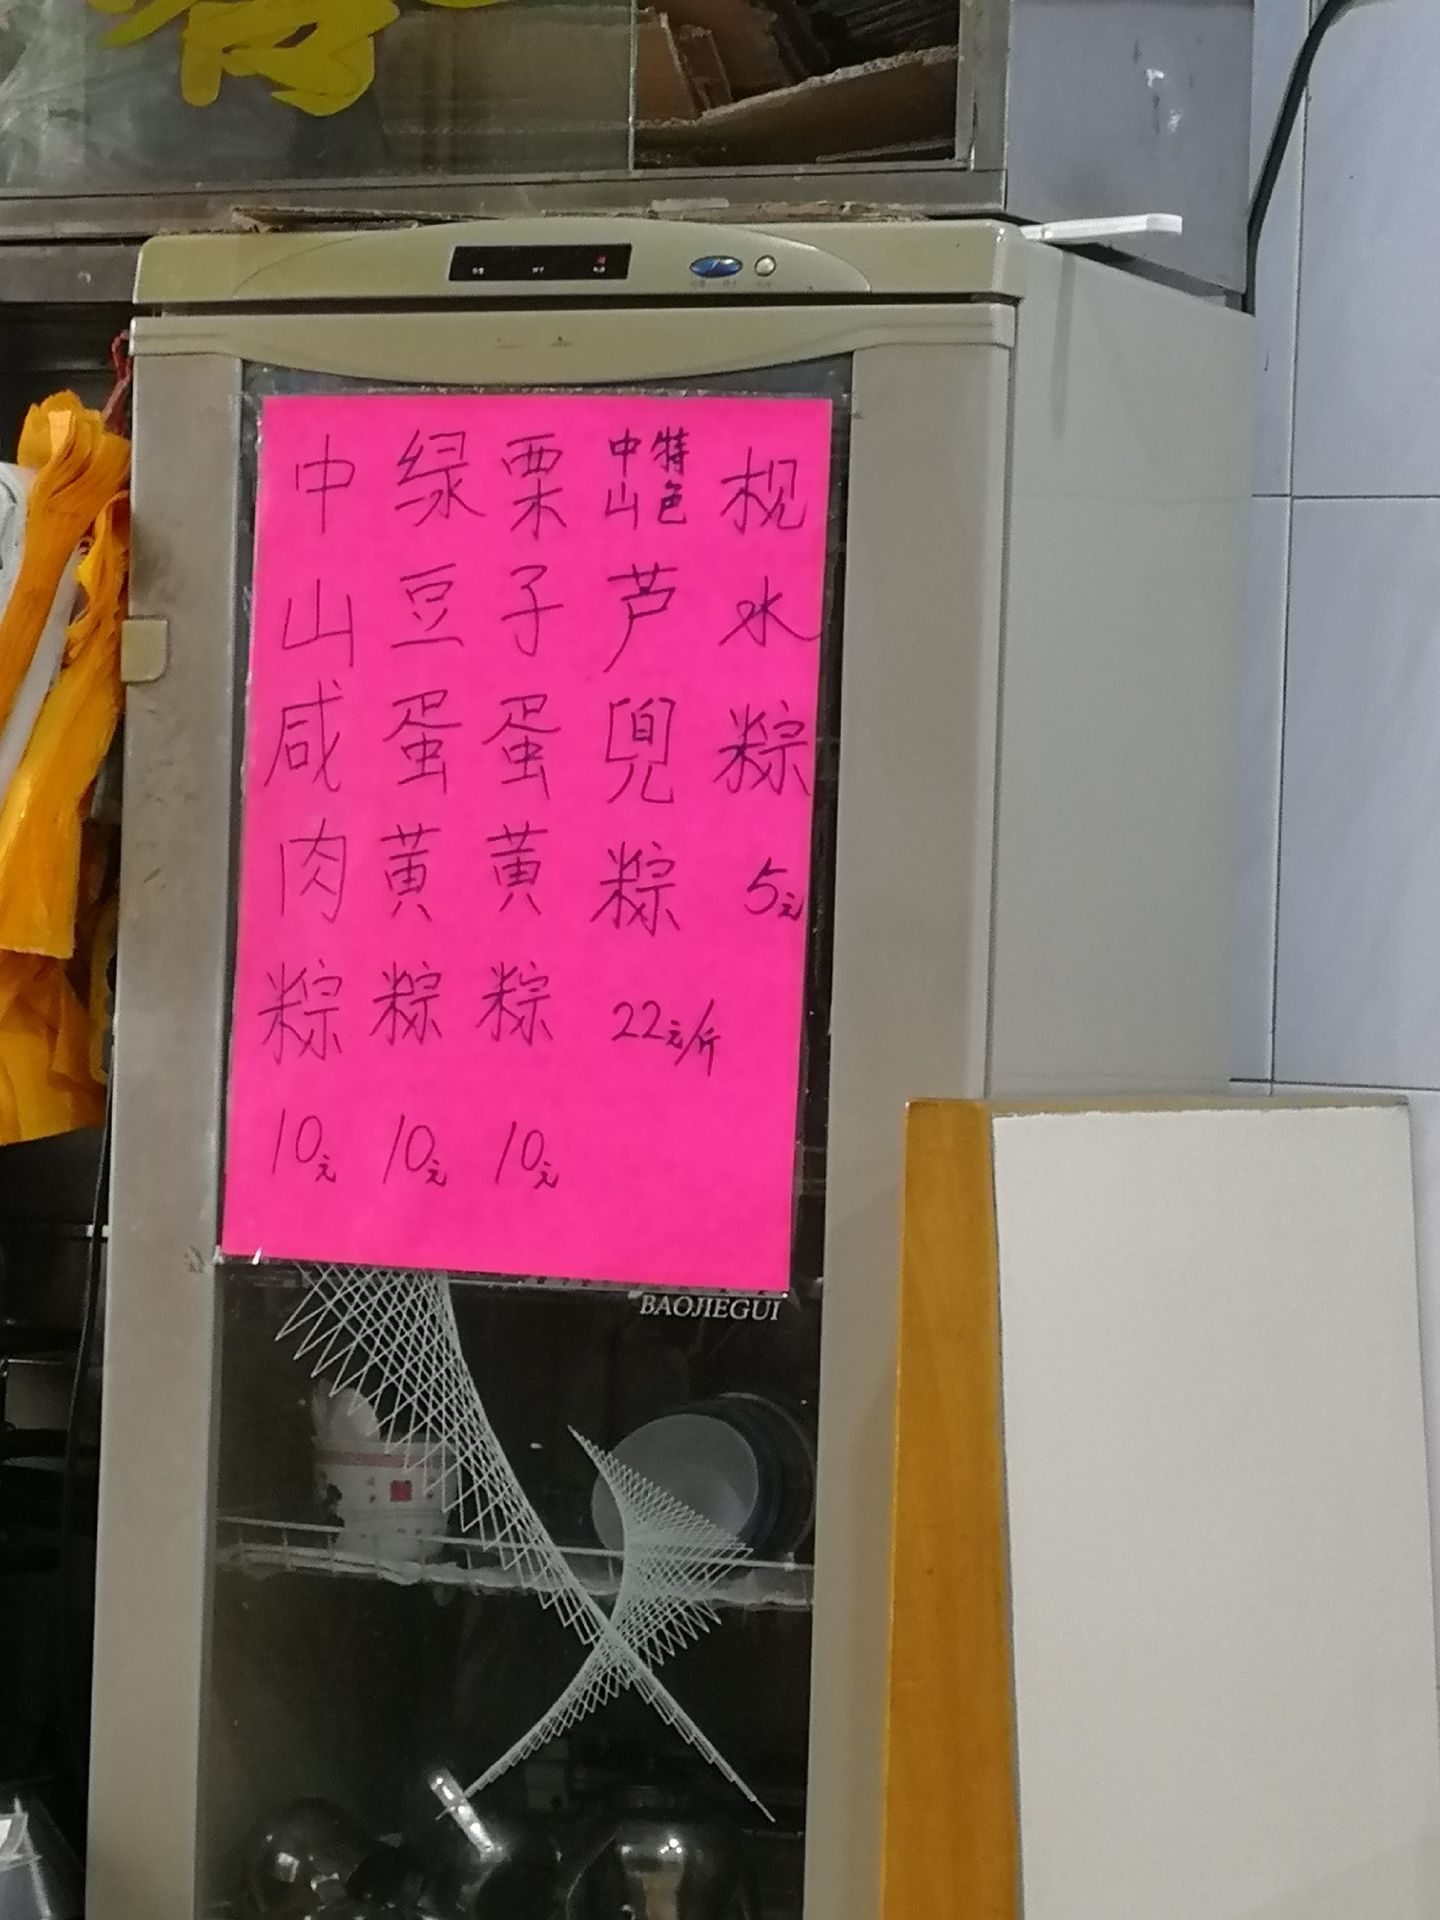 中山咸肉粽 10元
绿豆蛋黄粽 10元
栗子蛋黄粽 10元
中山特色芦兜粽 22元/斤
枧水粽 5元
BAOJIEGUI